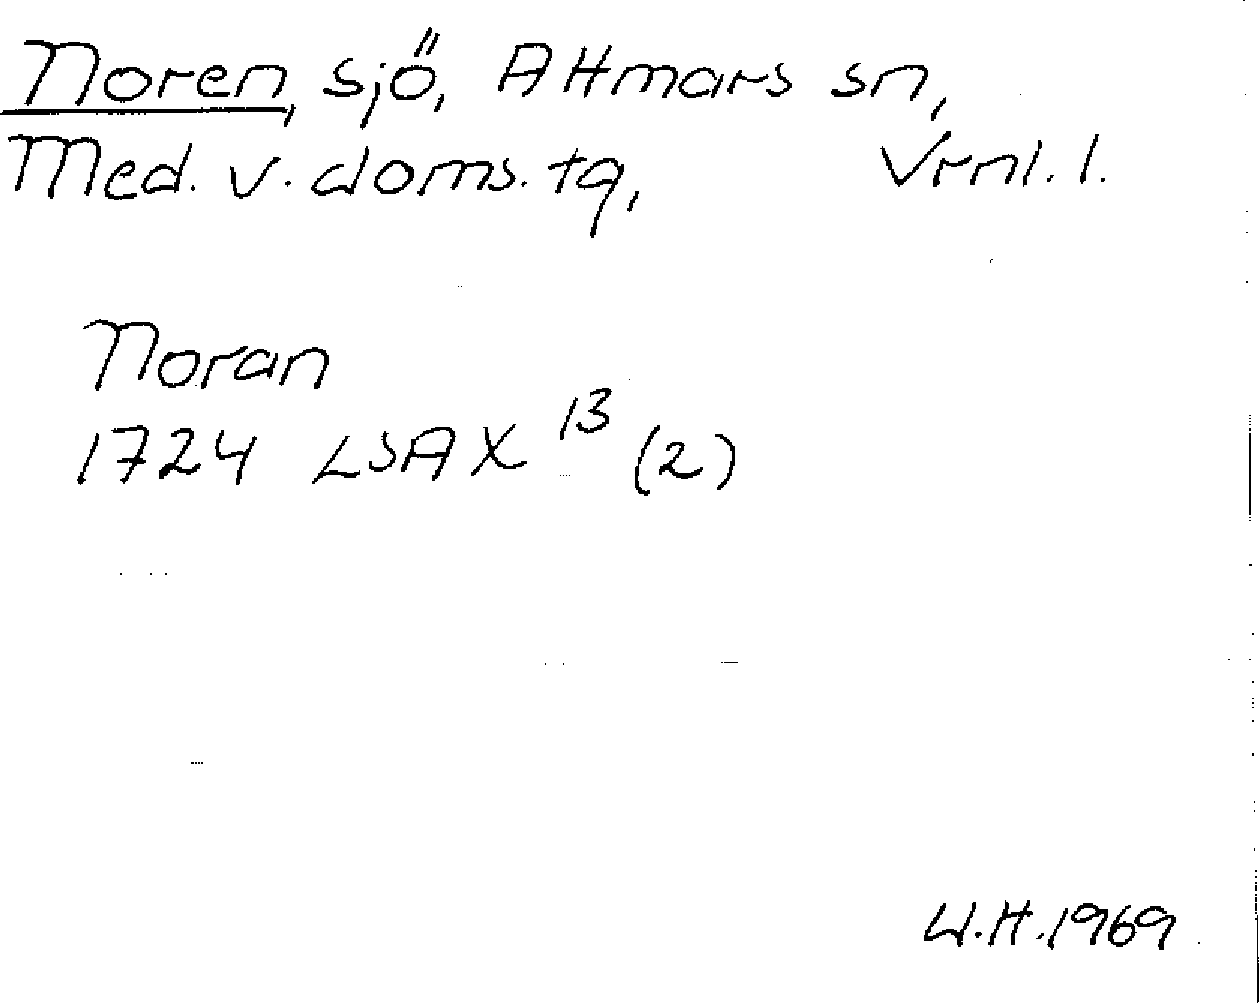 Noren, sjö, Attmars sn,
Med. v. doms. tg, Vrnl. l.
Noran
1724 LSA X 13 (2)
U.H. 1969